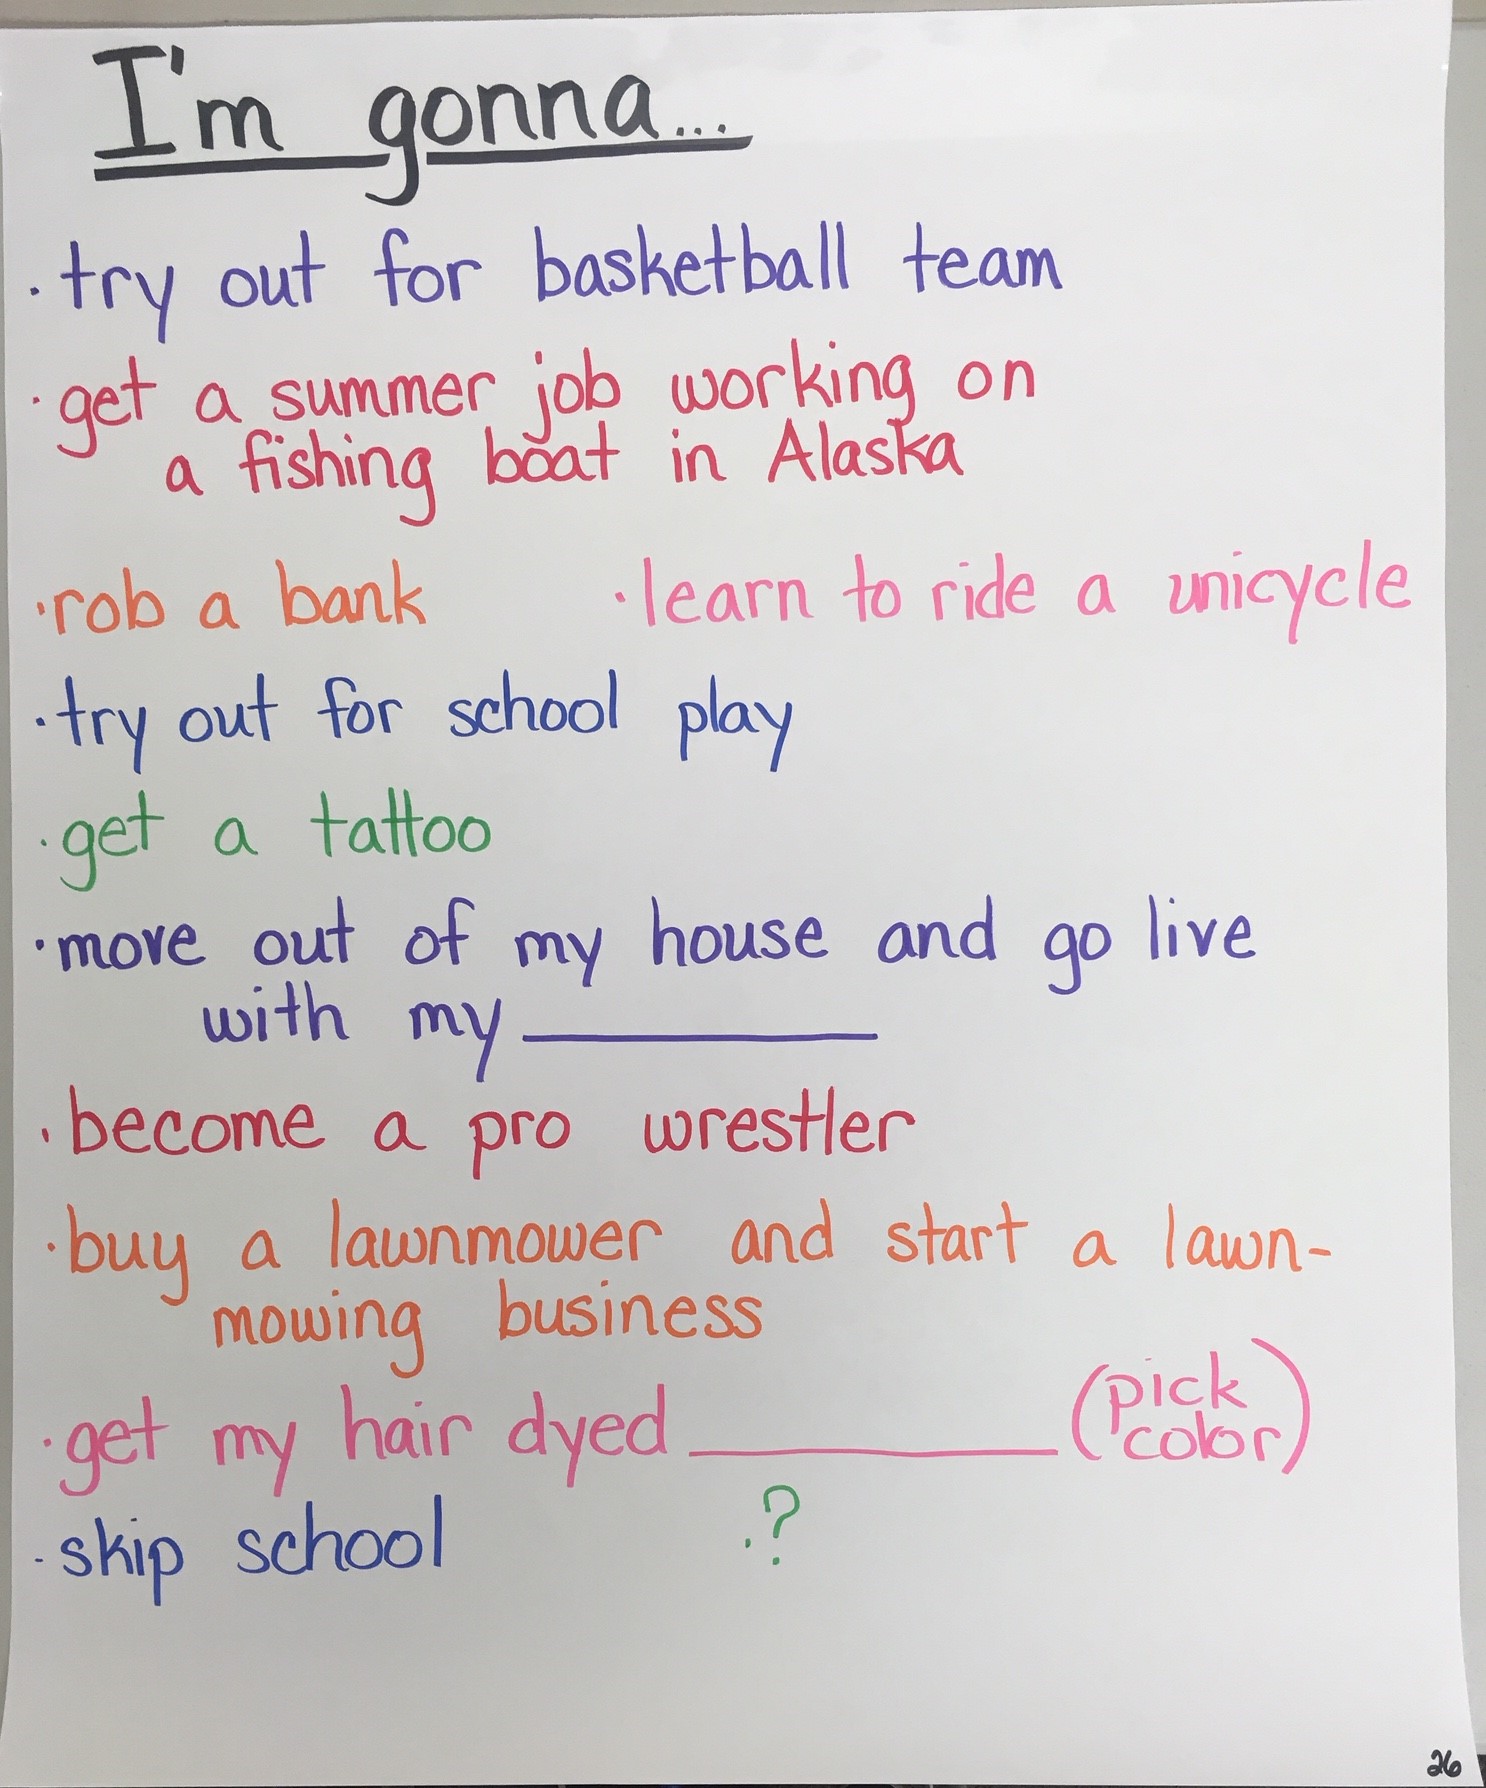 I'm gonna...
· try out for basketball team
· get a summer job working on
a fishing boat in Alaska
· rob a bank · learn to ride a unicycle
· try out for school play
· get a tattoo
· move out of my house and go live
with my __________
· become a pro wrestler
· buy a lawnmower and start a lawn-
mowing business
· get my hair dyed __________ (pick
color)
· skip school · ?
26